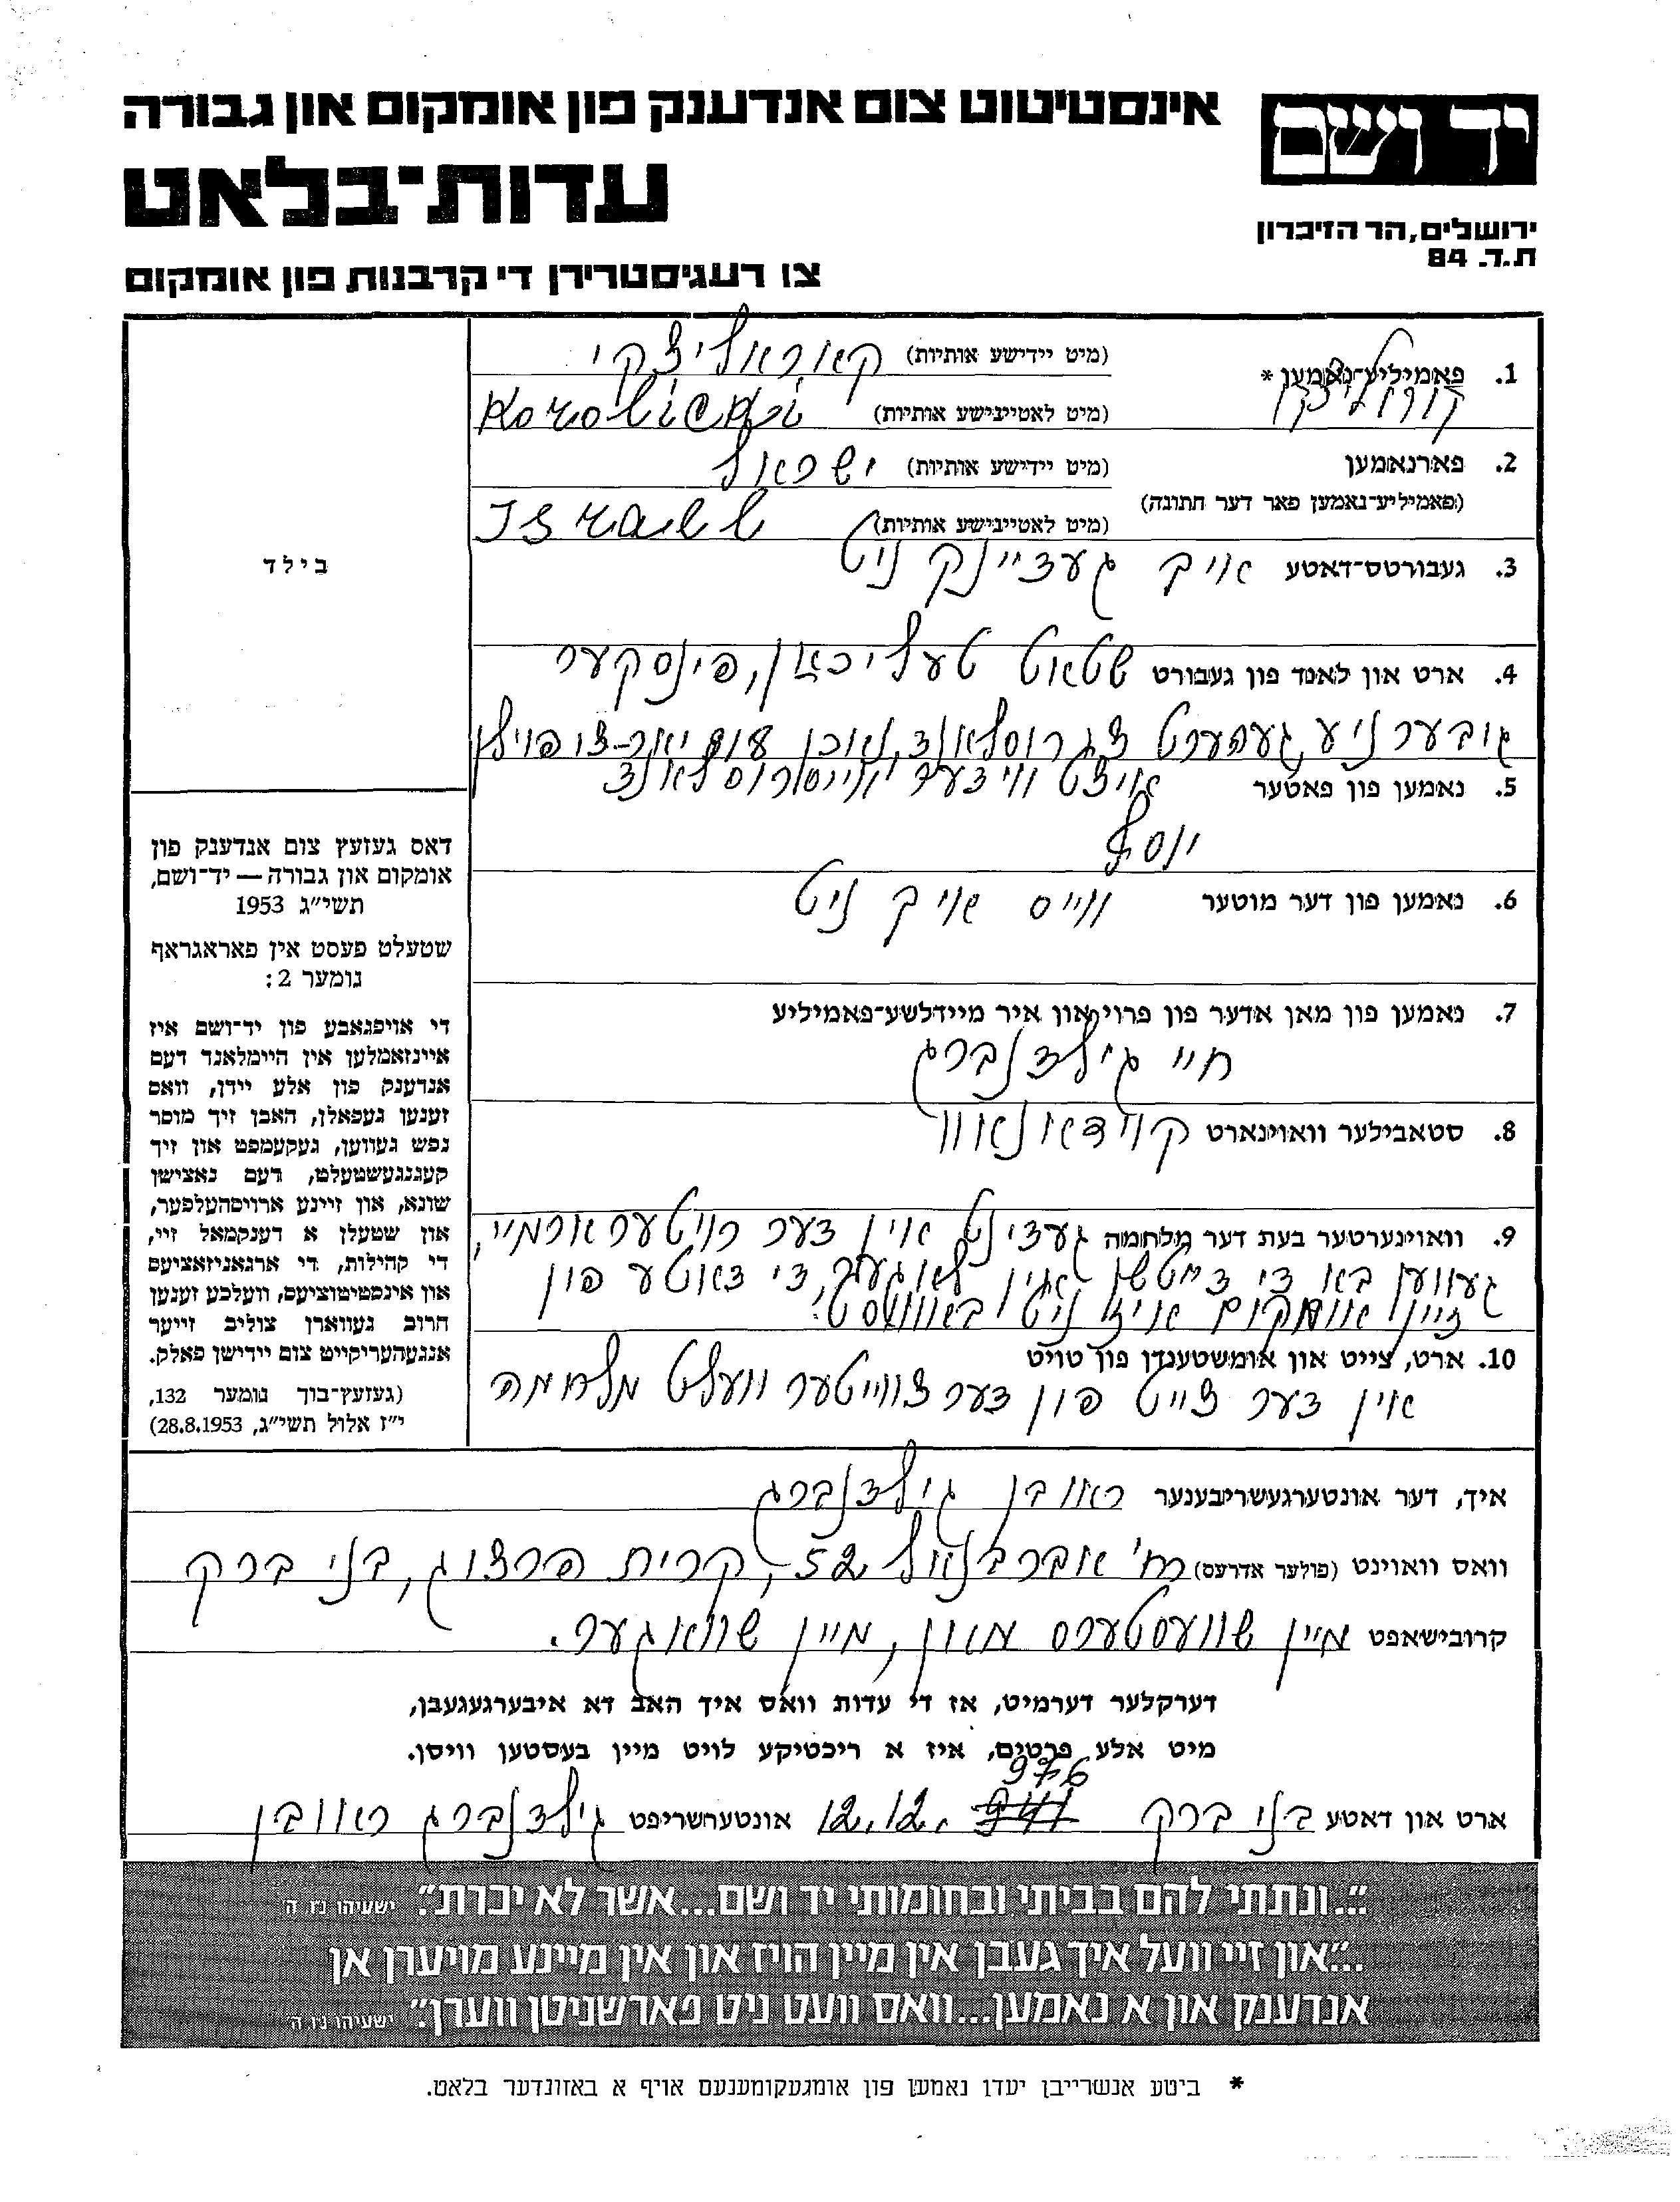 יד ושם
ירושלים, הר הזיכרון
ת.ד. 84
אינסטיטוט צום אנדענק פון אומקום און גבורה
עדות־בלאט
צו רעגיסטרירן די קרבנות פון אומקום
1. פאמיליע־נאמען * (מיט יידישע אותיות) קאראליצקי
קורוליצקי
(מיט לאטייינישע אותיות) Korolicki
2. פארנאמען (מיט יידישע אותיות) ישראל
(פאמיליע־נאמען פאר דער חתונה)
(מיט לאטייינישע אותיות) Israel
3. געבורטס־דאטע אויך געדיינק ניט
4. ארט און לאנד פון געבורט שטאט טעליכאן, פינסקער
גובערניע, געהערט צו רוסלאנד, נאכן יאר צו פוילן
איצט ווידער ווייסרוסלאנד
5. נאמען פון פאטער
יוסף
6. נאמען פון דער מוטער ווייס אויך ניט
7. נאמען פון מאן אדער פון פרוי און איר מיידלשע־פאמיליע
חיי גילדנברג
8. סטאבילער וואוינארט קוידאנאוו
9. וואוינערטער בעת דער מלחמה געדינט אין דער רויטער ארמיי,
געווען בא די דייטשן אין לאגער, די דאטע פון
זיין אומקום איז ניט באוואוסט.
10. ארט, צייט און אומשטענדן פון טויט
אין דער צייט פון דער צווייטער וועלט מלחמה
בילד
דאס געזעץ צום אנדענק פון
אומקום און גבורה — יד־ושם,
תשי״ג 1953
שטעלט פעסט אין פאראגראף
נומער 2:
די אויפגאבע פון יד־ושם איז
איינזאמלען אין היימלאנד דעם
אנדענק פון אלע יידן, וואס
זענען געפאלן, האבן זיך מוסר
נפש געווען, געקעמפט און זיך
קעגנגעשטעלט, דעם נאצישן
שונא, און זיינע ארויסהעלפער,
און שטעלן א דענקמאל זיי,
די קהילות, די ארגאניזאציעס
און אינסטיטוציעס, וועלכע זענען
חרוב געווארן צוליב זייער
אנגעהעריקייט צום יידישן פאלק.
(געזעץ־בוך נומער 132,
י״ז אלול תשי״ג, 28.8.1953)
איך, דער אונטערגעשריבענער ראובן גילדנברג
וואס וואוינט (פולער אדרעס) רח' אברבנאל 52, קרית הרצוג, בני ברק
קרובישאפט מיין שוועסטערס מאן, מיין שוואגער.
דערקלער דערמיט, אז די עדות וואס איך האב דא איבערגעגעבן,
מיט אלע פרטים, איז א ריכטיקע לויט מיין בעסטען וויסן.
ארט און דאטע בני ברק 12.12.976 אונטערשריפט גילדנברג ראובן
״...ונתתי להם בביתי ובחומותי יד ושם...אשר לא יכרת״. ישעיהו נו ה'
״...און זיי וועל איך געבן אין מיין הויז און אין מיינע מויערן אן
אנדענק און א נאמען...וואס וועט ניט פארשניטן ווערן״. ישעיהו נו ה'
* ביטע אנשרייבן יעדן נאמען פון אומגעקומענעם אויף א באזונדער בלאט.